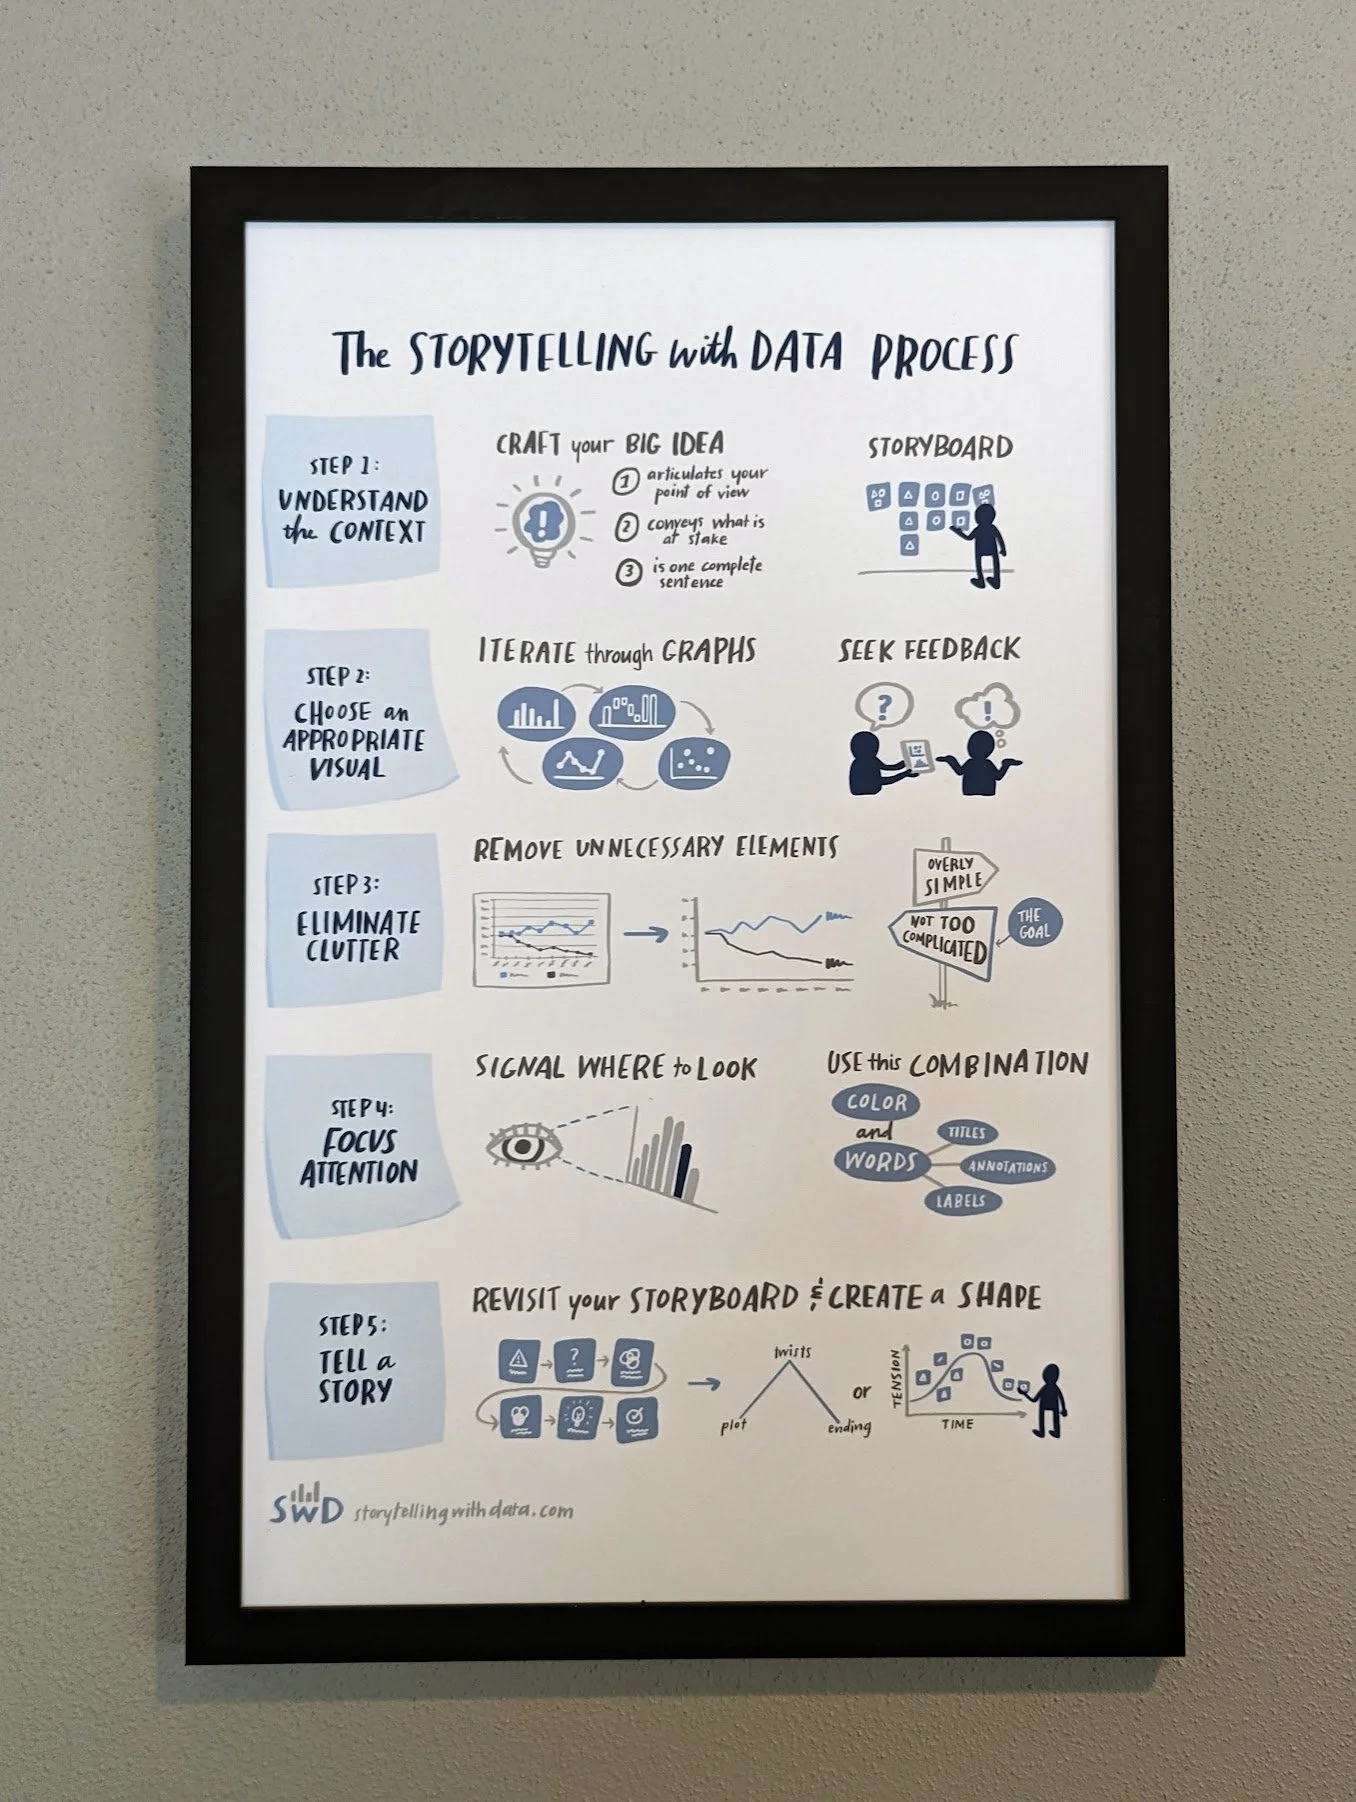 The STORYTELLING with DATA PROCESS
STEP 1:
UNDERSTAND
the CONTEXT
CRAFT your BIG IDEA
1 articulates your
point of view
2 conveys what is
at stake
3 is one complete
sentence
STORYBOARD
STEP 2:
CHOOSE an
APPROPRIATE
VISUAL
ITERATE through GRAPHS
SEEK FEEDBACK
?
!
STEP 3:
ELIMINATE
CLUTTER
REMOVE UNNECESSARY ELEMENTS
OVERLY
SIMPLE
NOT TOO
COMPLICATED
THE
GOAL
STEP 4:
FOCUS
ATTENTION
SIGNAL WHERE to LOOK
USE this COMBINATION
COLOR
and
WORDS
TITLES
ANNOTATIONS
LABELS
STEP 5:
TELL a
STORY
REVISIT your STORYBOARD & CREATE a SHAPE
?
twists
plot
ending
or
TENSION
TIME
SWD storytellingwithdata.com